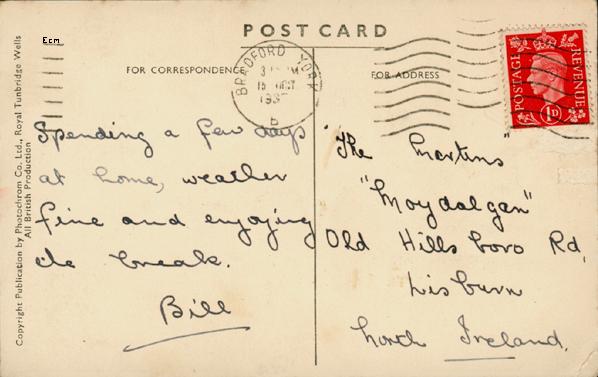 Ecm
POST CARD
FOR CORRESPONDENCE
FOR ADDRESS
BRADFORD YORK
15 OCT
193
POSTAGE
REVENUE
1D
Copyright Publication by Photochrom Co. Ltd., Royal Tunbridge Wells
All British Production
Spending a few days
at home, weather
fine and enjoying
the break.
Bill
The Martins
"Moydalgan"
Old Hillsboro Rd,
Lisburn
North Ireland.